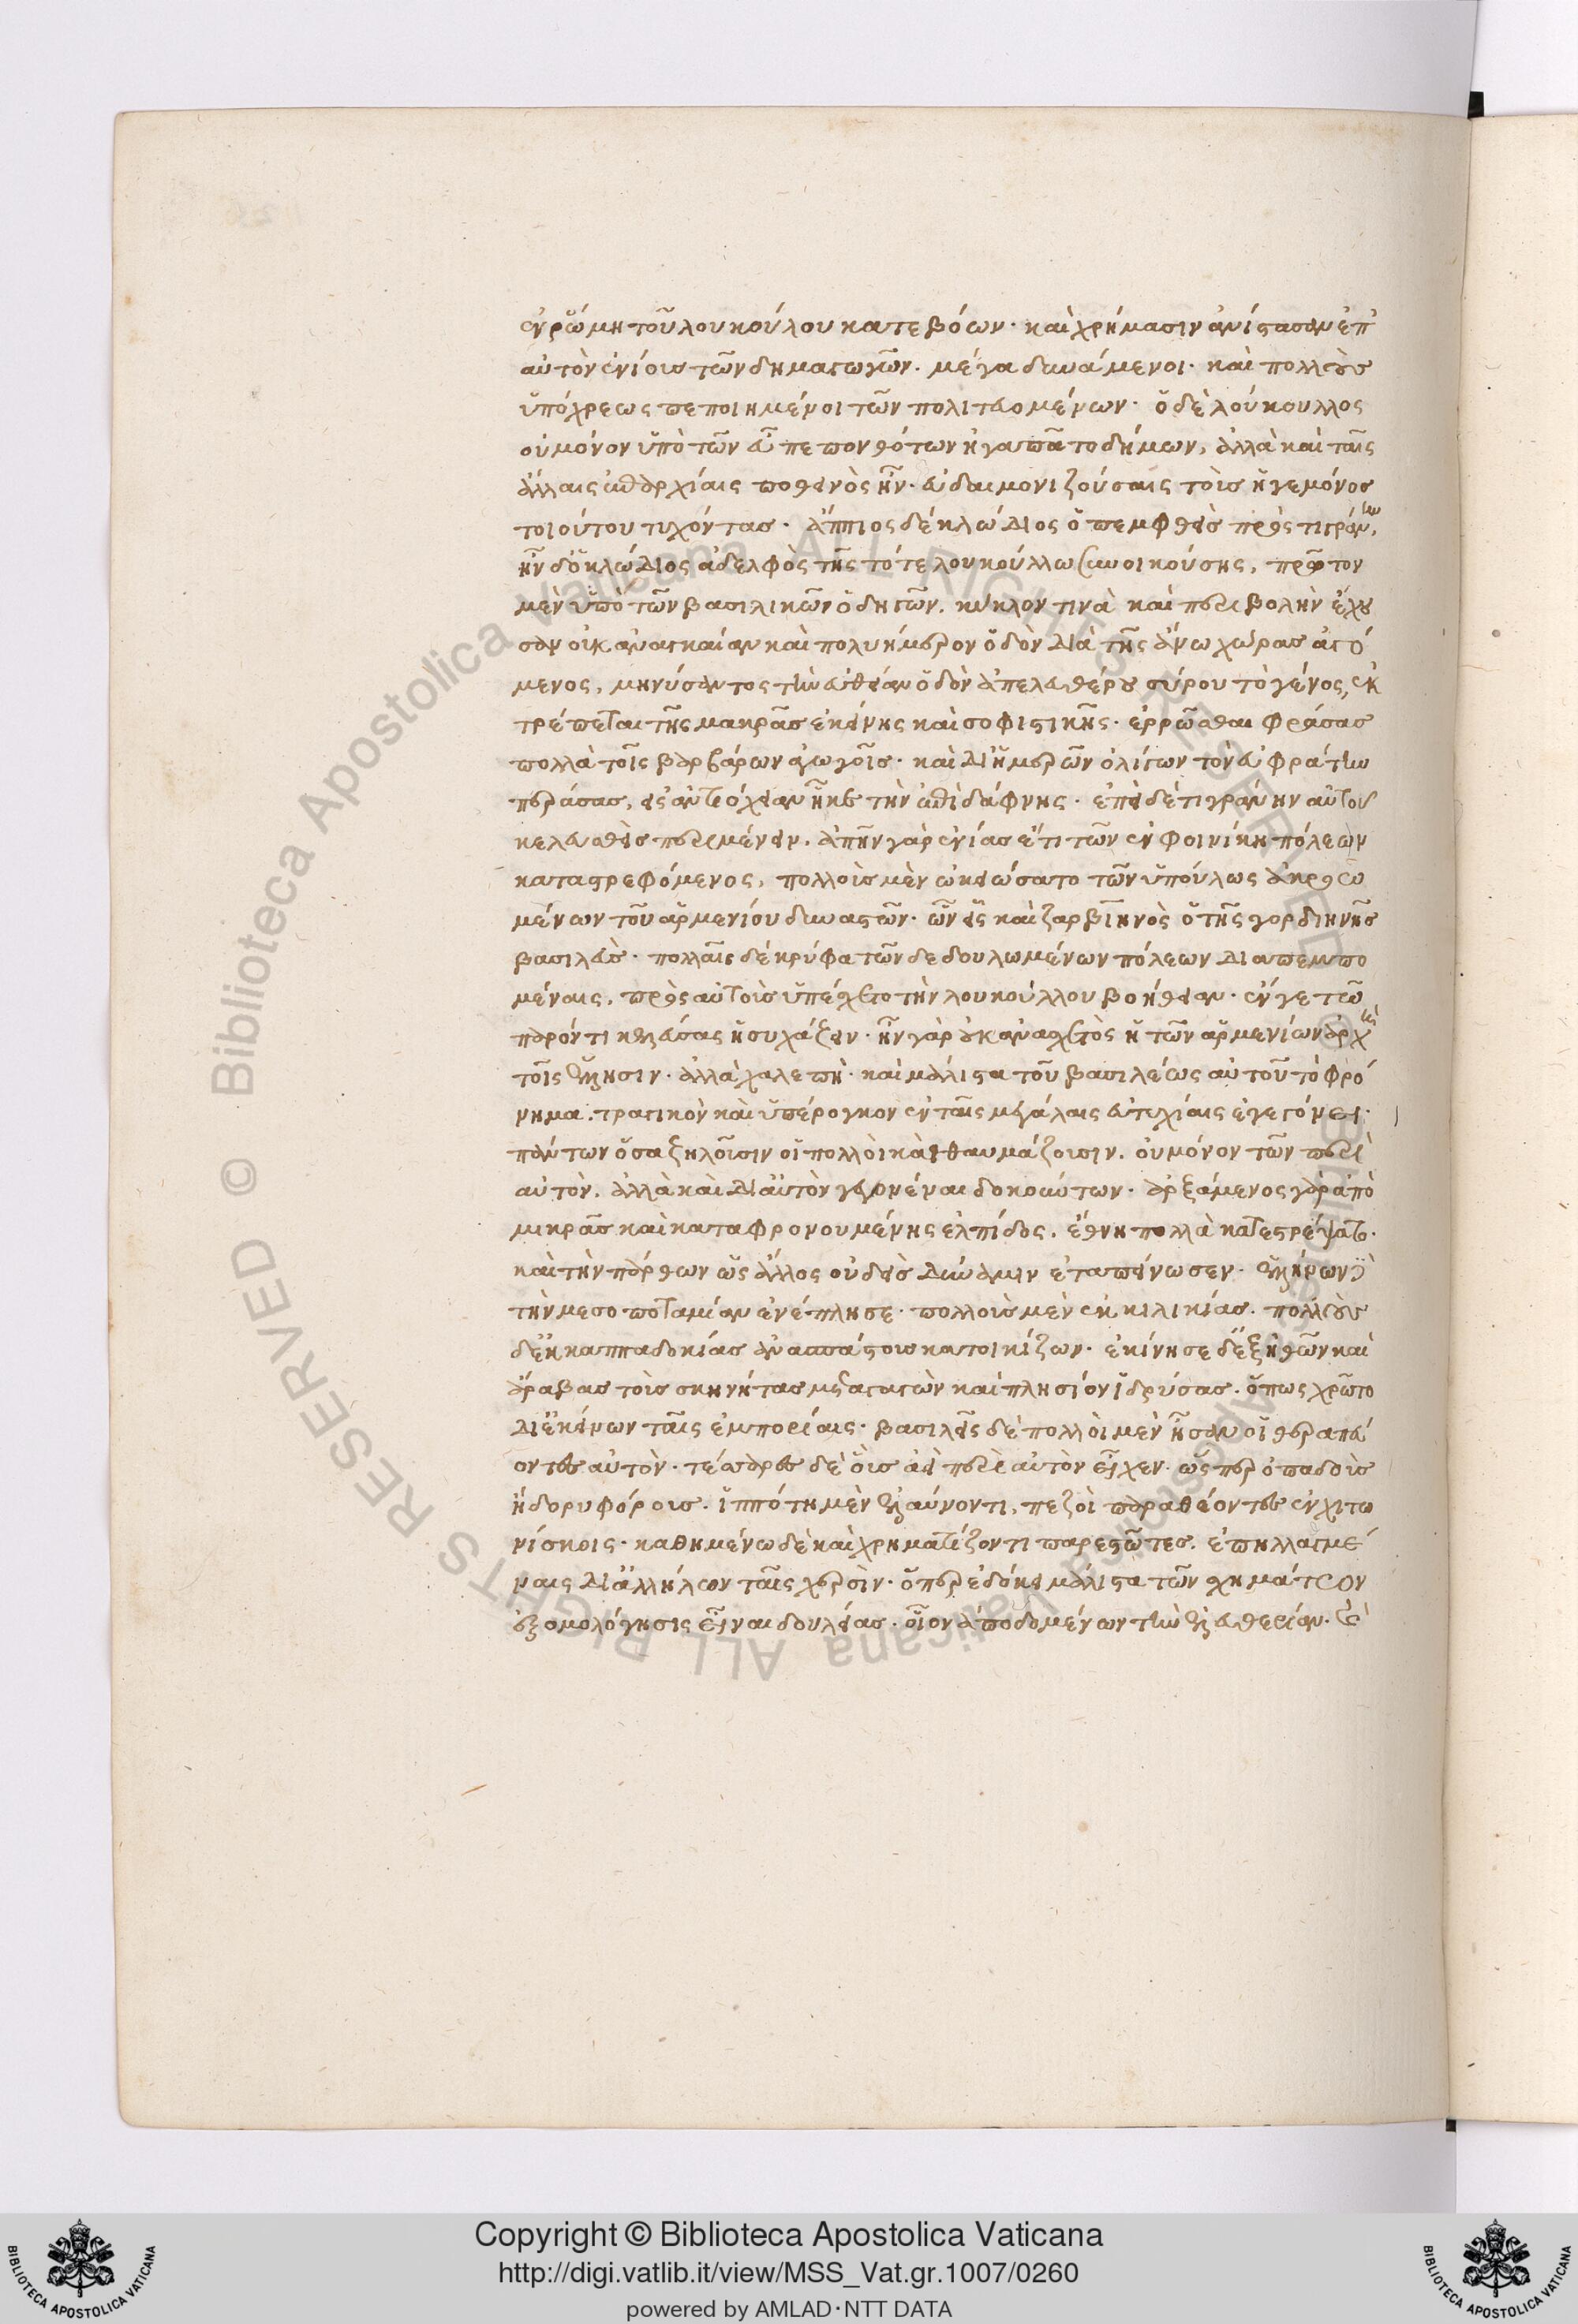 ἐν ῥώμη τοῦ λουκούλου κατεβόων· καὶ χρήμασιν ἀνίστασαν ἐπ'
αὐτὸν ἐνίους τῶν δημαγωγῶν. μέγα δυνάμενοι· καὶ πολλοὺς
ὑπόχρεως πεποιημένοι τῶν πολιτευομένων· ὁ δὲ λούκουλλος
οὐ μόνον ὑπὸ τῶν εὖ πεπονθότων ἠγαπᾶτο δήμων, ἀλλὰ καὶ ταῖς
ἄλλαις ἐπαρχίαις ποθεινὸς ἦν· εὐδαιμονιζούσαις τοὺς ἡγεμόνος
τοιούτου τυχόντας· ἄππιος δὲ κλώδιος ὁ πεμφθεὶς πρὸς τιγράνην,
ἦν δ' ὁ κλώδιος ἀδελφὸς τῆς τότε λουκούλλω συνοικούσης, πρῶτον
μὲν ὑπὸ τῶν βασιλικῶν ὁδηγῶν. κύκλον τινὰ καὶ περιβολὴν ἔχου
σαν οὐκ ἀναγκαίαν καὶ πολυήμερον ὁδὸν διὰ τῆς ἄνω χώρας ἀγό
μενος, μηνύσαντος τὴν εὐθεῖαν ὁδὸν ἀπελευθέρου σύρου τὸ γένος, ἐκ
τρέπεται τῆς μακρᾶς ἐκείνης καὶ σοφιστικῆς· ἐρρῶσθαι φράσας
πολλὰ τοῖς βαρβάρων ἀγωγοῖς· καὶ δι' ἡμερῶν ὀλίγων τὸν εὐφράτην
περάσας, εἰς ἀντιόχειαν ἧκε τὴν ἐπὶ δάφνης· ἐπεὶ δὲ τιγράνην αὐτοῦ
κελευσθεὶς περιμένειν. ἀπῆν γὰρ ἐνίας ἔτι τῶν ἐν φοινίκη πόλεων
καταστρεφόμενος, πολλοὺς μὲν ὠκειώσατο τῶν ὑπούλως ἀκροω
μένων τοῦ ἀρμενίου δυναστῶν· ὧν εἷς καὶ ζαρβιηνὸς ὁ τῆς γορδιηνῆς
βασιλεὺς· πολλαῖς δὲ κρύφα τῶν δεδουλωμένων πόλεων διαπεμπο
μέναις, πρὸς αὐτοὺς ὑπέσχετο τὴν λουκούλλου βοήθειαν· ἔν γε τῶ
παρόντι κελεύσας ἡσυχάζειν· ἦν γὰρ οὐκ ἀνασχετὸς ἡ τῶν ἀρμενίων ἀρχὴ
τοῖς ἕλλησιν· ἀλλὰ χαλεπὴ· καὶ μάλιστα τοῦ βασιλέως αὐτοῦ τὸ φρό
νημα. τραγικὸν καὶ ὑπέρογκον ἐν ταῖς μεγάλαις εὐτυχίαις ἐγεγόνει·
πάντων ὅσα ζηλοῦσιν οἱ πολλοὶ καὶ θαυμάζουσιν. οὐ μόνον τῶν περὶ
αὐτὸν. ἀλλὰ καὶ δι' αὐτὸν γεγονέναι δοκούντων· ἀρξάμενος γὰρ ἀπὸ
μικρᾶς καὶ καταφρονουμένης ἐλπίδος. ἔθνη πολλὰ κατεστρέψατο·
καὶ τὴν πάρθων ὡς ἄλλος οὐδεὶς δύναμιν ἐταπείνωσεν· ἑλλήνων δὲ
τὴν μεσοποταμίαν ἐνέπλησε· πολλοὺς μὲν ἐκ κιλικίας. πολλοὺς
δ' ἐκ καππαδοκίας ἀνασπάστους κατοικίζων· ἐκίνησε δ' ἐξ ἠθῶν καὶ
ἄραβας τοὺς σκηνήτας μεταγαγὼν καὶ πλησίον ἱδρύσας. ὅπως χρῶτο
δι' ἐκείνων ταῖς ἐμπορίαις· βασιλεῖς δὲ πολλοὶ μὲν ἦσαν οἱ θεραπεύ
οντες αὐτὸν· τέσσαρες δὲ οὓς ἀεὶ περὶ αὐτὸν εἶχεν. ὥσπερ ὀπαδοὺς
ἢ δορυφόρους. ἱππότη μὲν ἐλαύνοντι, πεζοὶ παραθέοντες ἐν χιτω
νίσκοις· καθημένω δὲ καὶ χρηματίζοντι παρεστῶτες. ἐπηλλαγμέ
ναις δι' ἀλλήλων ταῖς χερσὶν· ὅπερ ἐδόκει μάλιστα τῶν σχημάτων
ἐξομολόγησις εἶναι δουλείας. οἷον ἀποδομένων τὴν ἐλευθερίαν. καὶ
Copyright © Biblioteca Apostolica Vaticana
http://digi.vatlib.it/view/MSS_Vat.gr.1007/0260
powered by AMLAD·NTT DATA